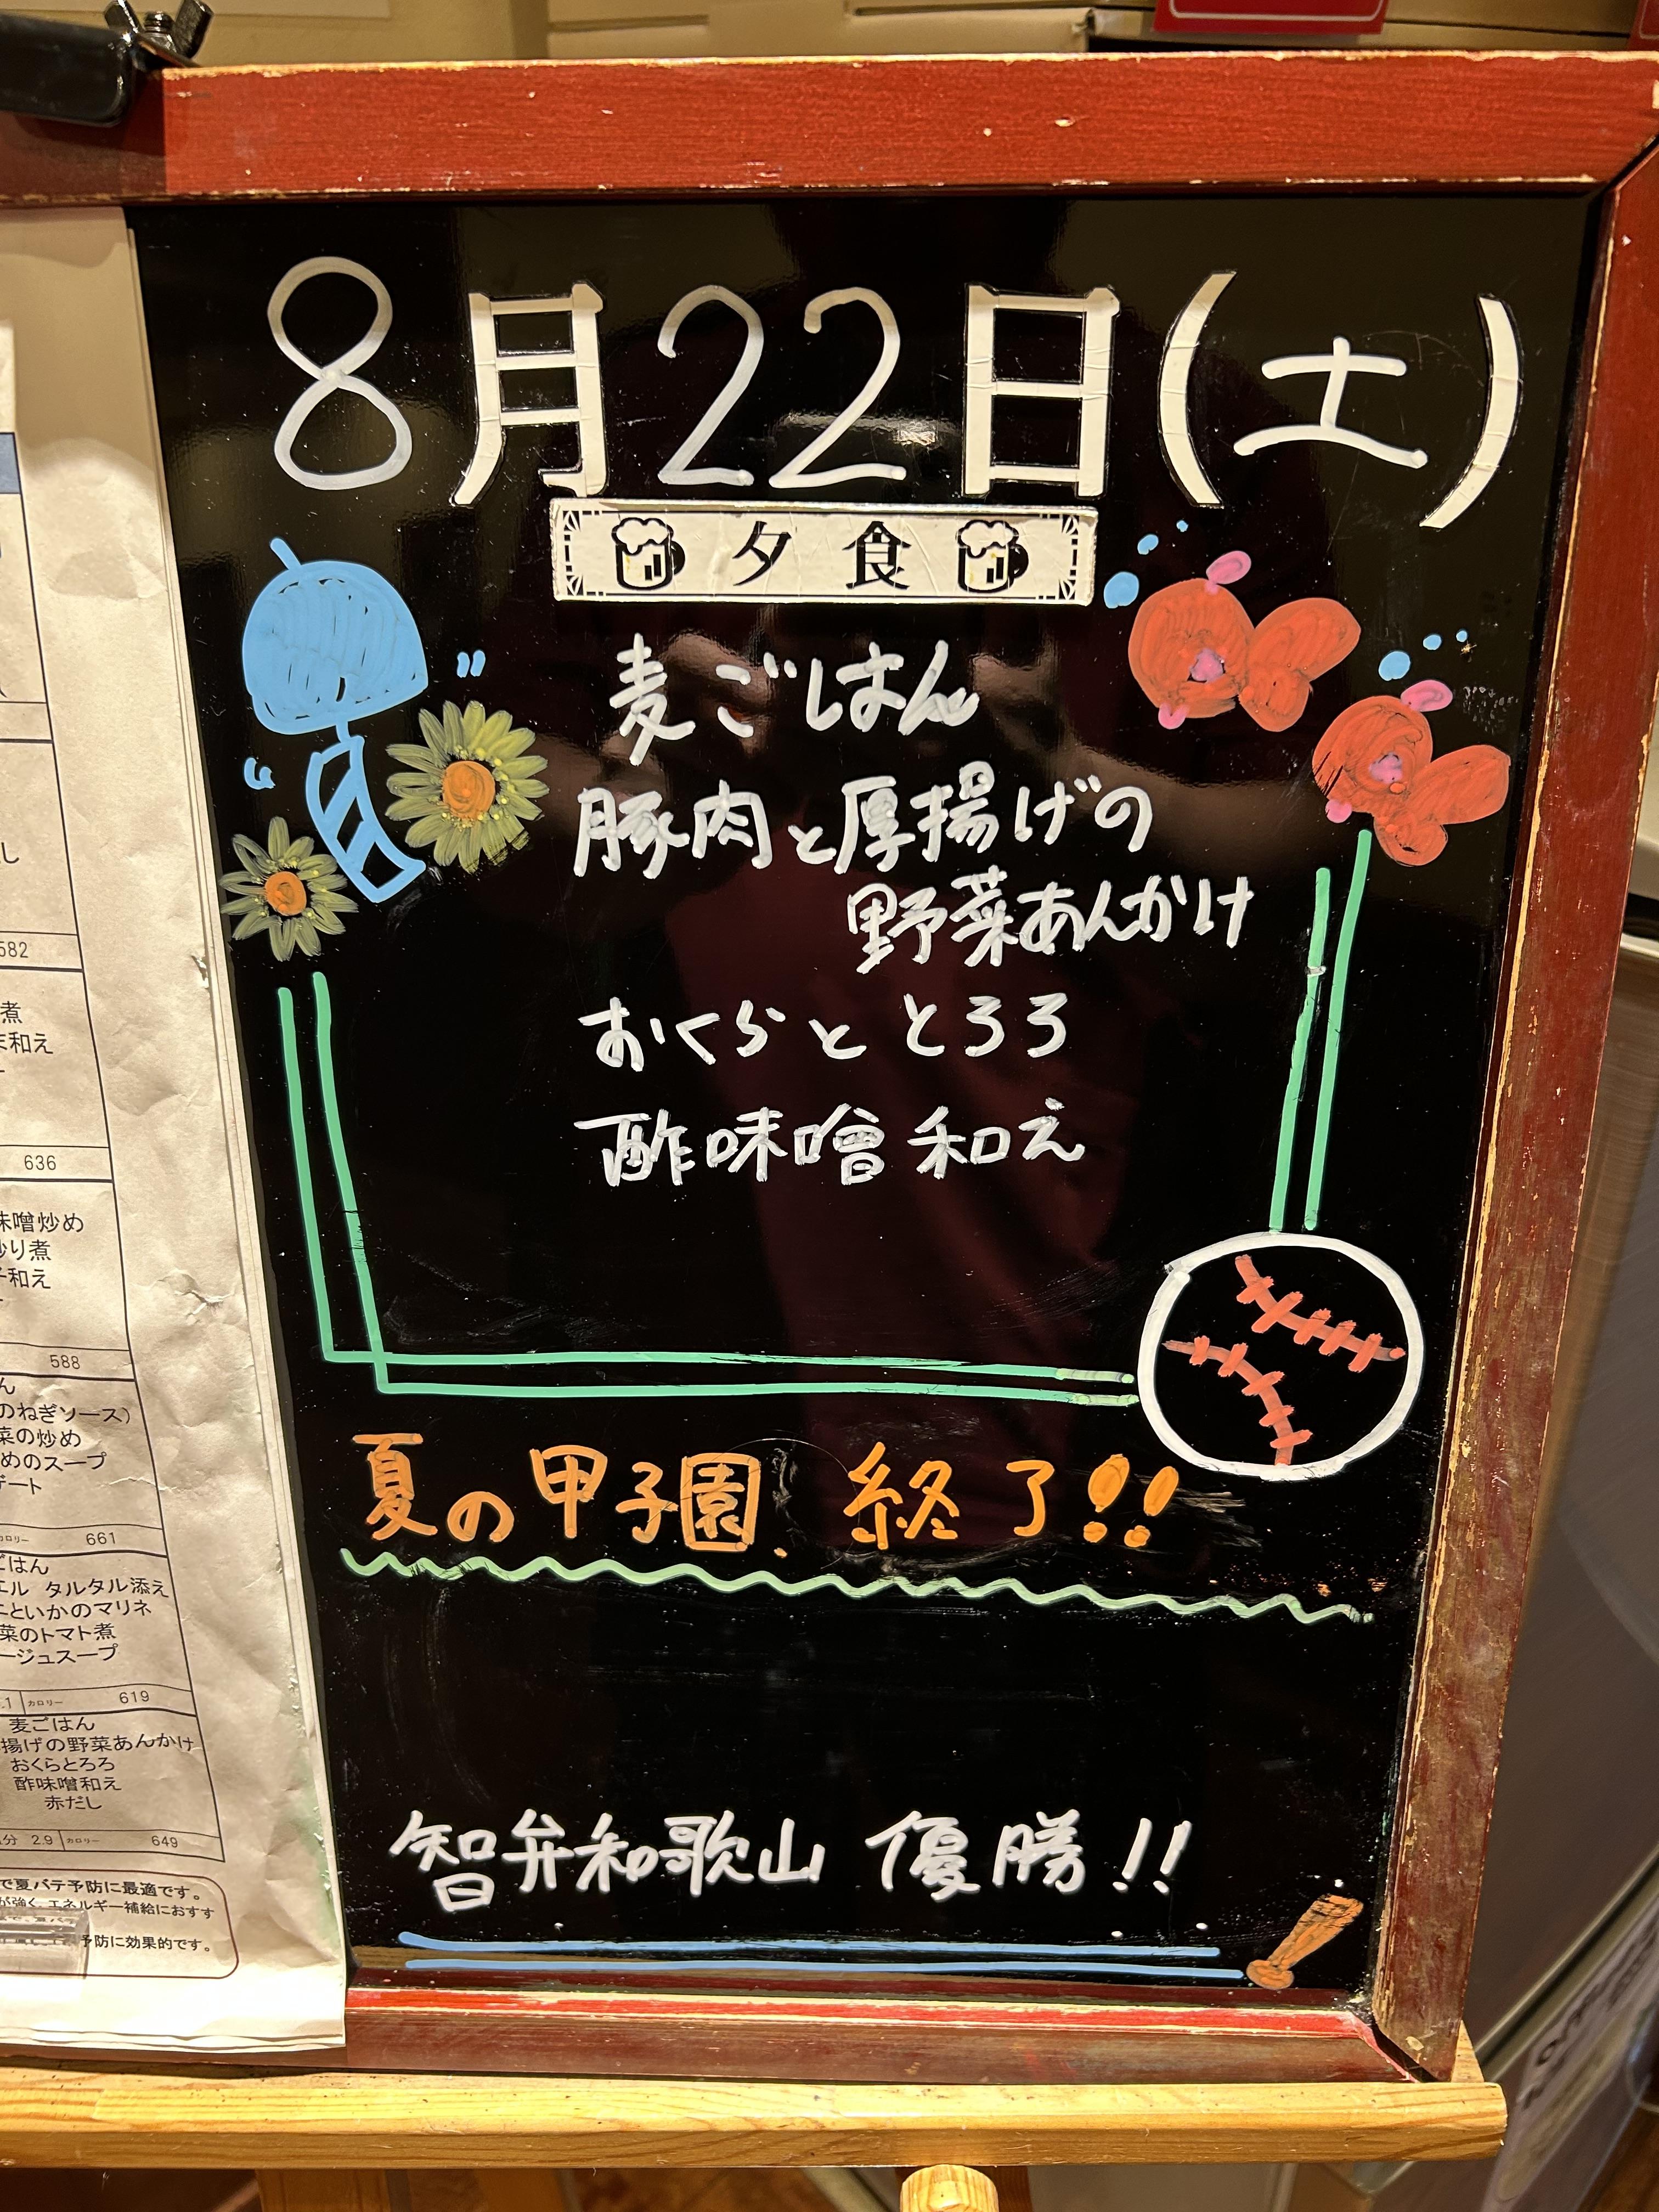 8月22日(土)
夕食
麦ごはん
豚肉と厚揚げの
野菜あんかけ
おくらととろろ
酢味噌和え
夏の甲子園、終了!!
智弁和歌山 優勝!!
し
582
煮
ま和え
636
味噌炒め
炒り煮
和え
588
ん
のねぎソース)
菜の炒め
めのスープ
デート
カロリー 661
ごはん
エル タルタル添え
といかのマリネ
菜のトマト煮
ージュスープ
.1 カロリー 619
麦ごはん
揚げの野菜あんかけ
おくらとろろ
酢味噌和え
赤だし
分 2.9 カロリー 649
で夏バテ予防に最適です。
が強く、エネルギー補給におすす
予防に効果的です。